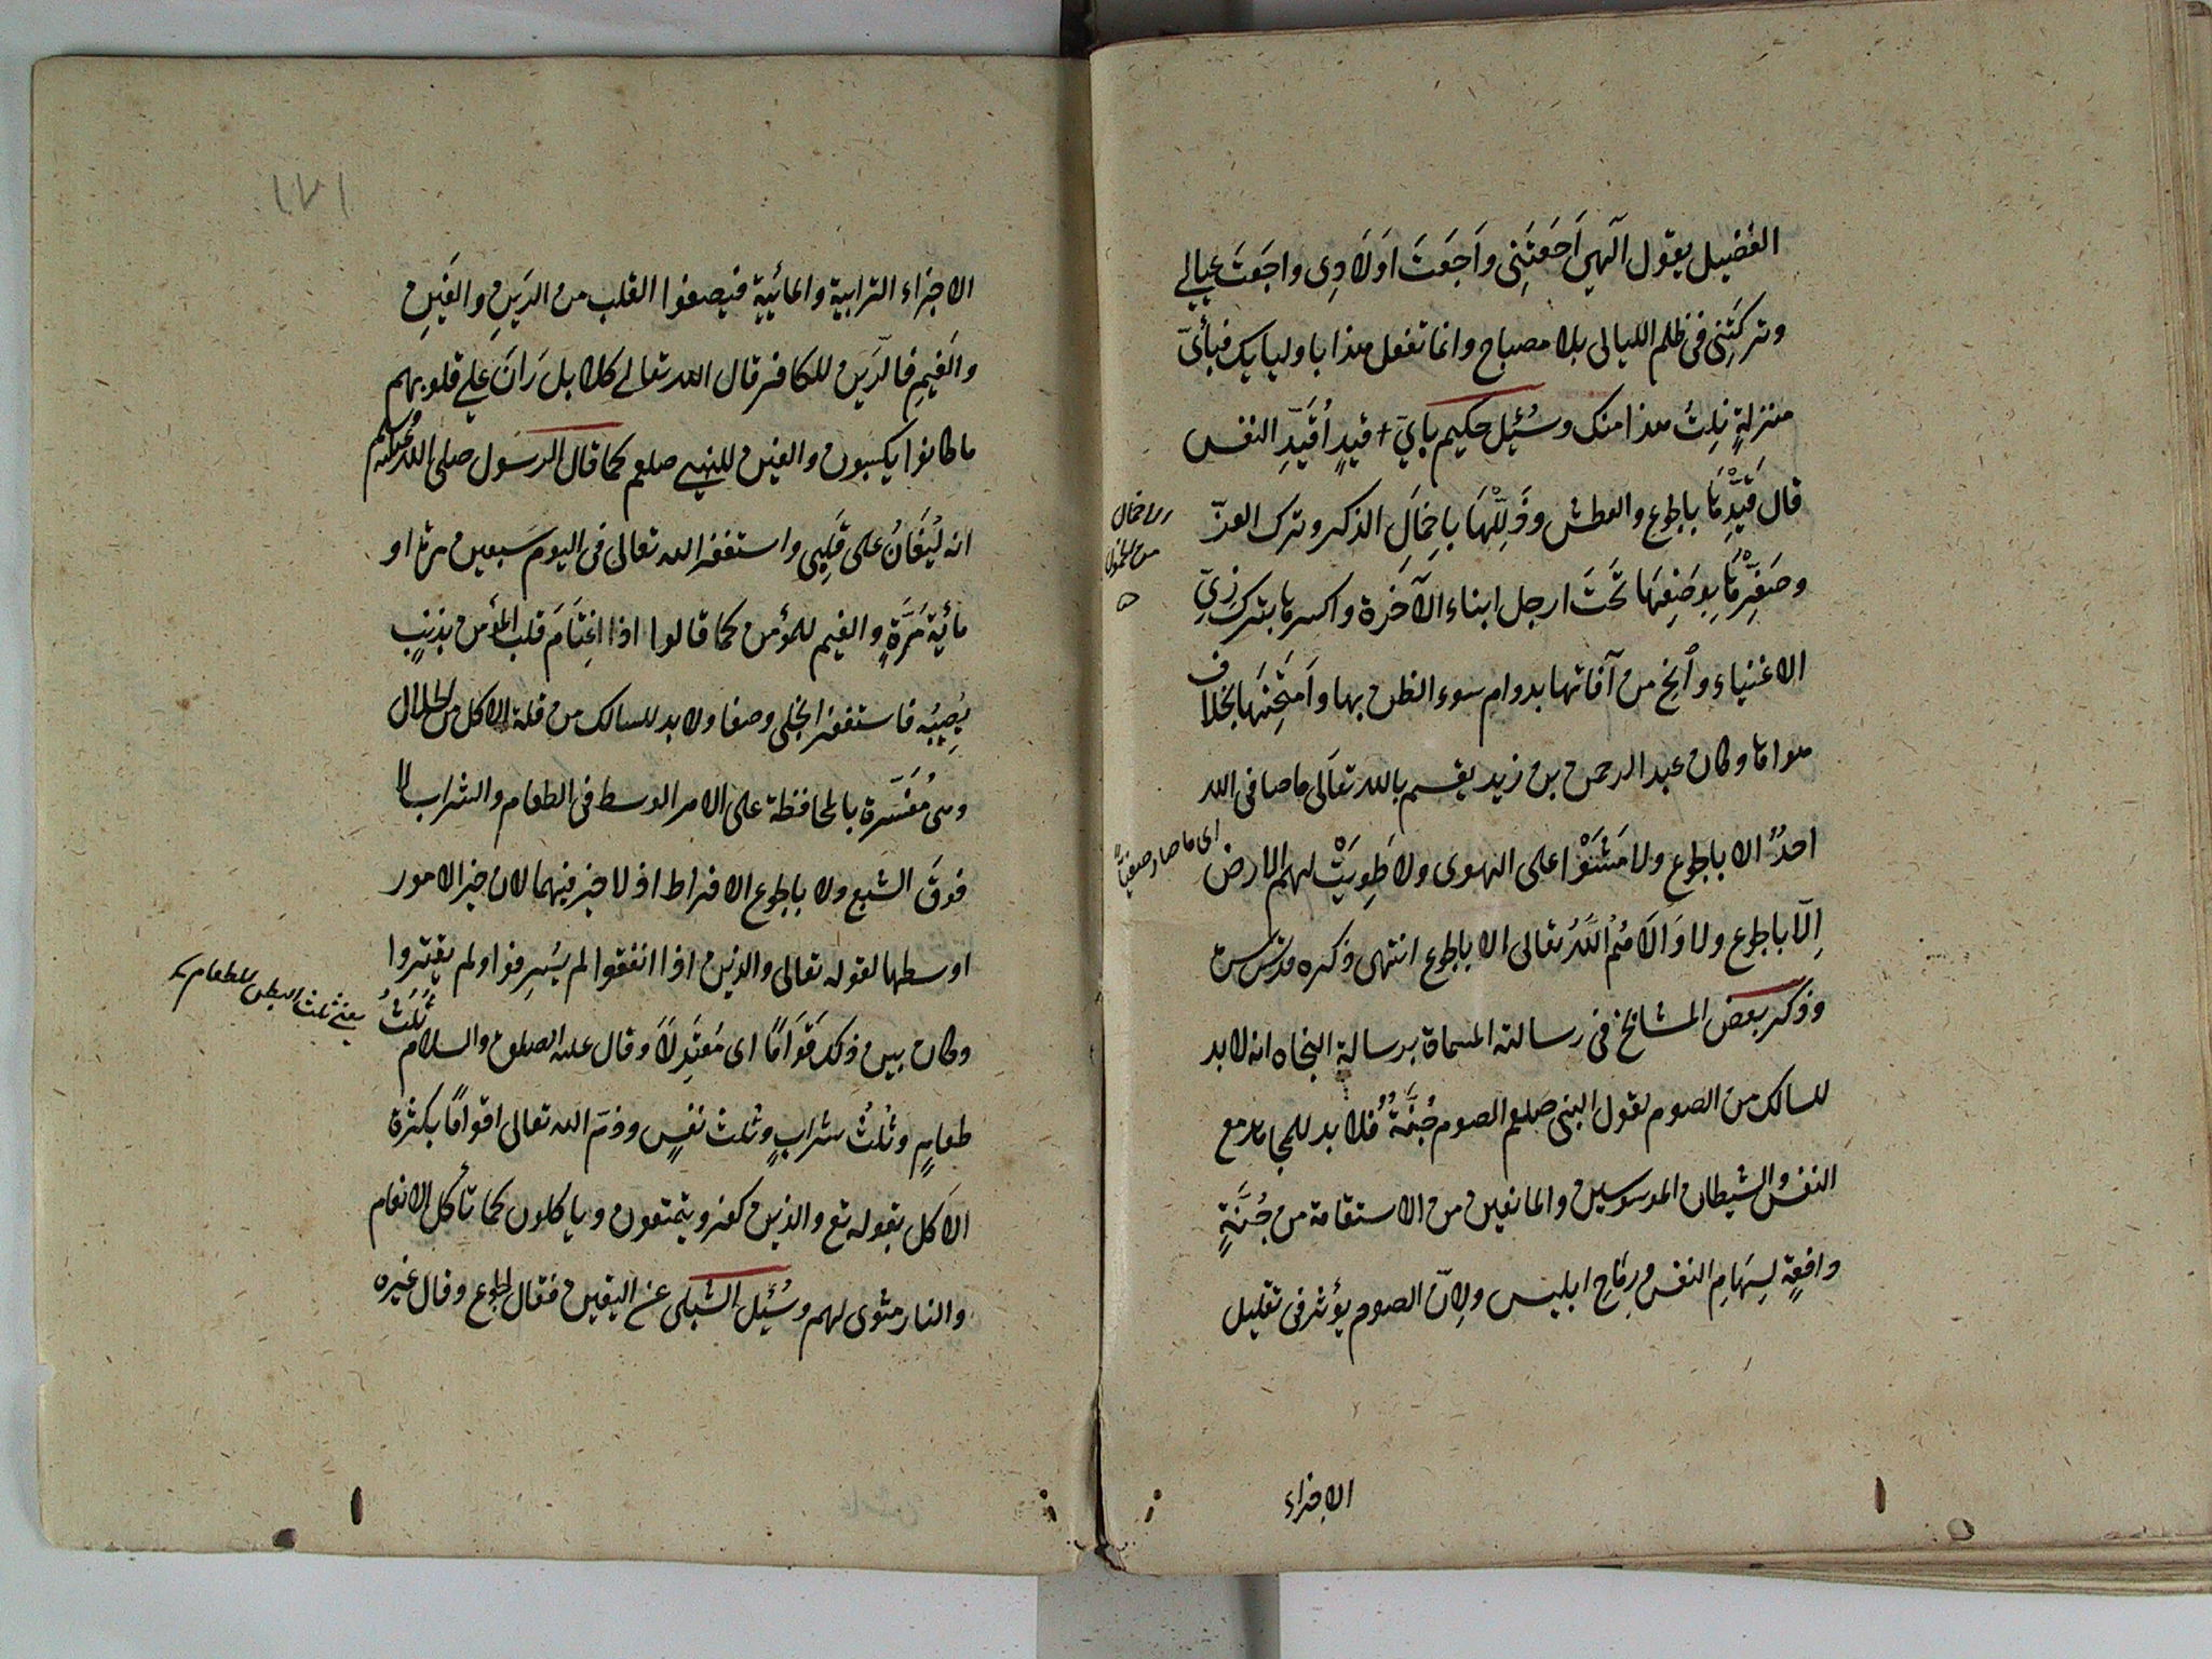 الفضيل يقول الهي اَجَعتَنِي وَاَجَعتَ اَولَادِي واجَعتَ عيالي
وتركتَنِي في ظلم الليالي بلا مصباح وانما تفعل هذا باوليايك فبأيّ
منزلةٍ نِلتُ هذا منك وسُئِل حكيم بايّ قيدٍ اُقَيِّدِ النفس
قال قَيِّدْهَا بالجوع والعطش وذَلِّلْهَا بِاِخمَالِ الذكر وترك العزّ
وصَغِّرْهَا بِوَضعِهَا تَحتَ ارجل ابناء الآخرة واكسرها بترك زِيّ
الاغنياء وانج من آفاتها بدوام سوء الظن بها وَامتَحِنهَا بخلاف
هواها وكان عبد الرحمن بن زيد يقسم بالله تعالى ما صافى الله
احدٌ الا بالجوع ولا مَشَوْا على الهوى ولا طُوِيَتْ لهم الارض
اِلّا بالجوع ولا وَالَاهُمُ اللهُ تعالى الا بالجوع انتهى ذكره قدس سره
وذكر بعض المشائخ في رسالته المسماة برسالة النجاه انه لابد
للسالك من الصوم لقول النبي صلعم الصوم جُنَّةٌ فلا بد للمجاهد مع
النفس والشيطان الموسوسين والمانعين من الاستقامة من جُنَّةٍ
دافعةٍ لِسِهَامِ النفس ورِمَاحِ ابليس ولِاَنّ الصوم يؤثر في تقليل
الاجزاء
من الخمول
اي ما صار صفيًّا
١٧١
الاجزاء الترابية والمائية فيصفوا القلب من الرَينِ والغَينِ
والغَيمِ فالرَين للكافر قال الله تعالى كلا بل رَانَ على قلوبهم
ما كانوا يكسبون والغين للنبي صلعم كما قال الرسول صلى الله عليه وسلم
انه لَيُغَانُ على قَلبِي واستغفر الله تعالى في اليوم سَبعين مرة او
مائة مَرَّةٍ والغيم للمؤمن كما قالوا اذا اغتَامَ قلب المؤمن بذنبٍ
يُصِيبُه فاستغفر انجلى وصفا ولابد للسالك من قلة الاكل من الحلال
وهي مُفَسَّرَة بالمحافظة على الامر الوسط في الطعام والشراب لا
فوقَ الشبع ولا بالجوع الافراط اذ لا خير فيهما لان خير الامور
اوسطها لقوله تعالى والذين اذا انفقوا لم يُسرِفوا ولم يقتروا
وكان بين ذلك قَوَامًا اي مُعتَدِلًا وقال عليه الصلوة والسلام ثُلُثُ
طعامٍ وثُلُثُ شرابٍ وثُلث نفسٍ وذمّ الله تعالى اقوامًا بكثرة
الاكل بقوله تع والذين كفروا يتمتعون وياكلون كما تأكل الانعام
والنار مثوى لهم وسُئِل الشبلي عن اليقين فقال الجوع وقال غيره
يعني ثلث البطن للطعام